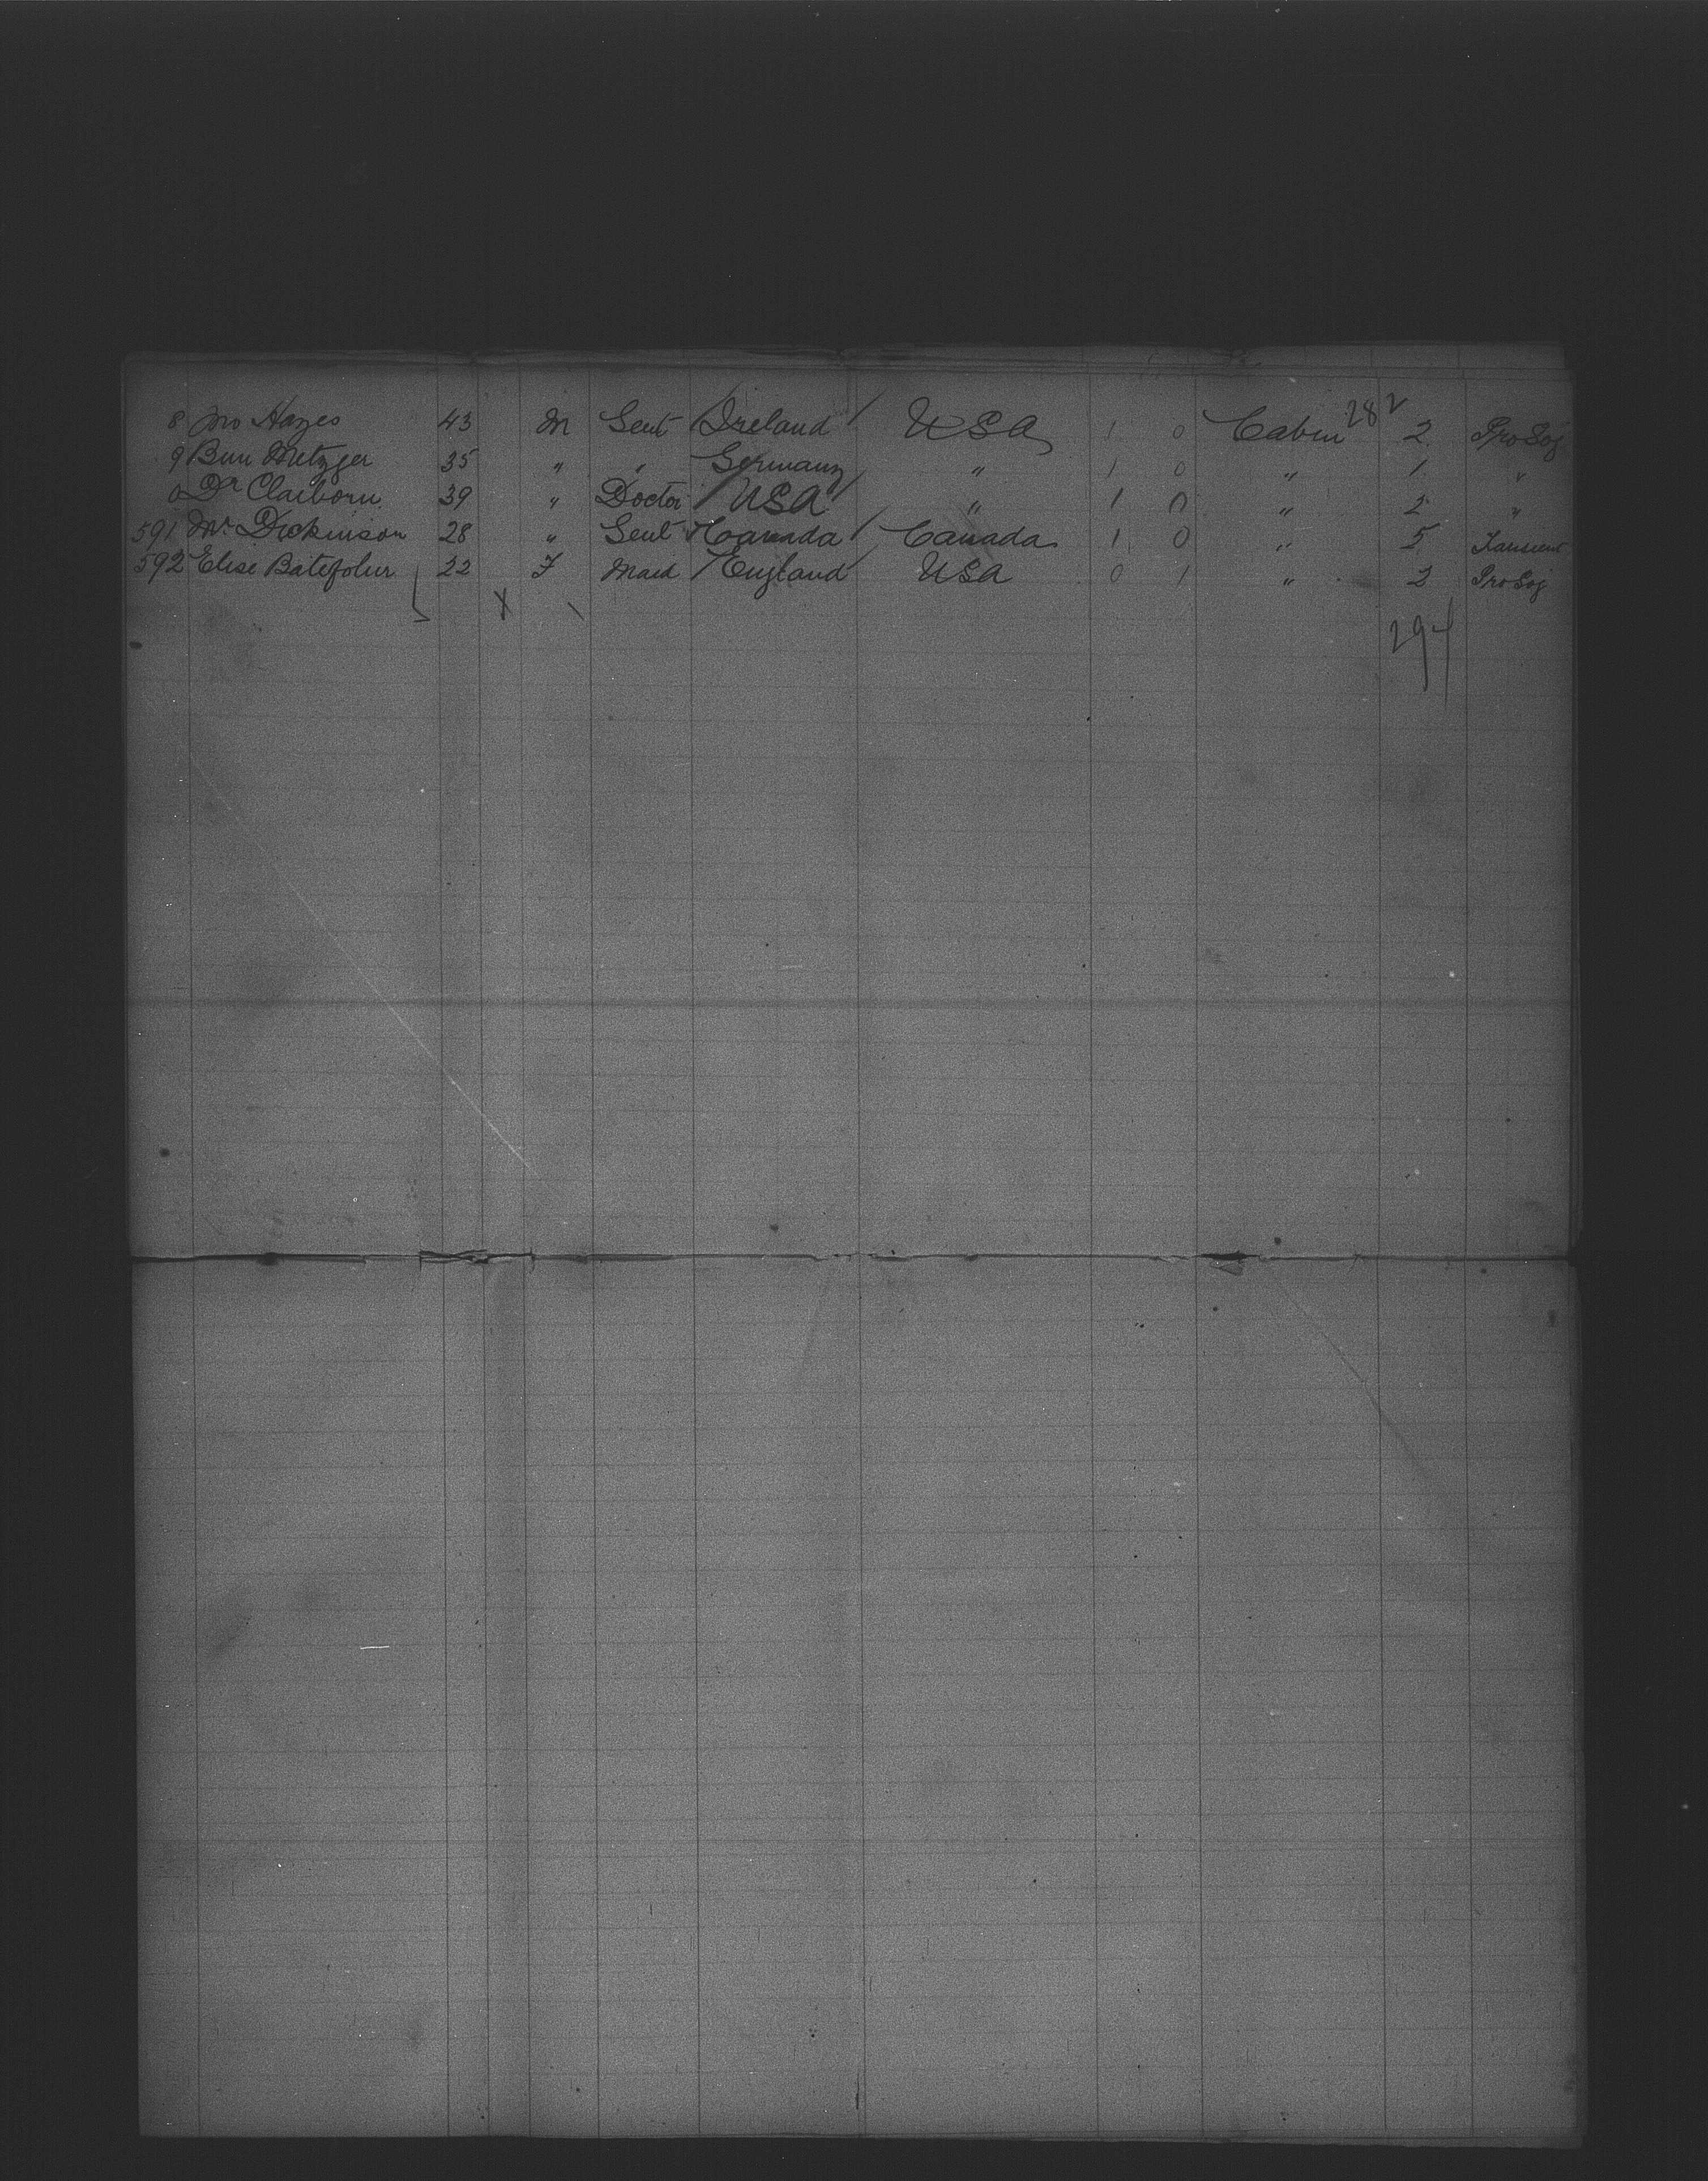 8 Jno Hayes 43 M Gent Ireland USA 1 0 Cabin 282 2 Pro Soj
9 Metzger 35 " " Germany " 1 0 " 1 "
0 Dr Claiborn 39 " Doctor USA " 1 0 " 2 "
591 Mr Dickinson 28 " Gent Canada Canada 1 0 " 5 Transient
592 Elise 22 F Maid England USA 0 1 " 2 Pro Soj
X
294